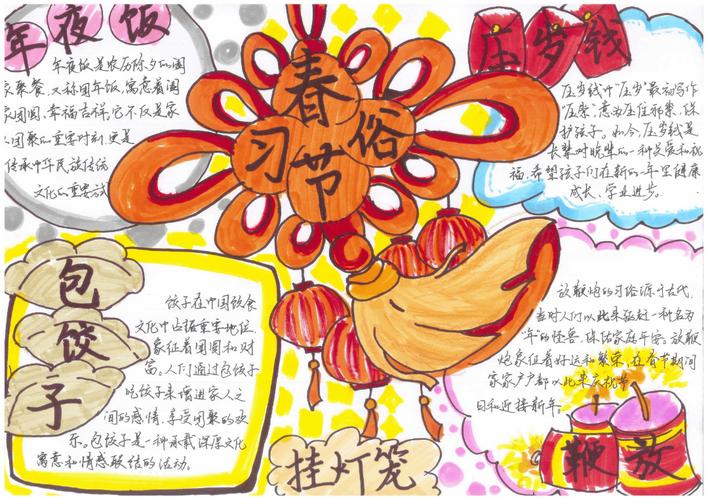 年夜饭
年夜饭是农历除夕的阖
家聚餐,又称团年饭,寓意着阖
家团圆,幸福吉祥,它不仅是家
人团聚的重要时刻,更是
传承中华民族传统
文化的重要方式
春
习 俗
节
压岁钱
压岁钱中"压岁"最初写作
"压祟",意为压住邪祟,保
护孩子。如今,压岁钱是
长辈对晚辈的一种关爱和祝
福,希望孩子们在新的一年里健康
成长,学业进步。
包
饺
子
饺子在中国饮食
文化中占据重要地位,
象征着团圆和财
富。人们通过包饺子
吃饺子来增进家人之
间的感情,享受团聚的欢
乐。包饺子是一种承载深厚文化
寓意和情感联结的活动。
挂灯笼
放鞭炮的习俗源于古代,
当时人们以此来驱赶一种名为
"年"的怪兽,保佑家庭平安。放鞭
炮象征着好运和繁荣,在春节期间
家家户户都以此来庆祝节
日和迎接新年。
鞭 放